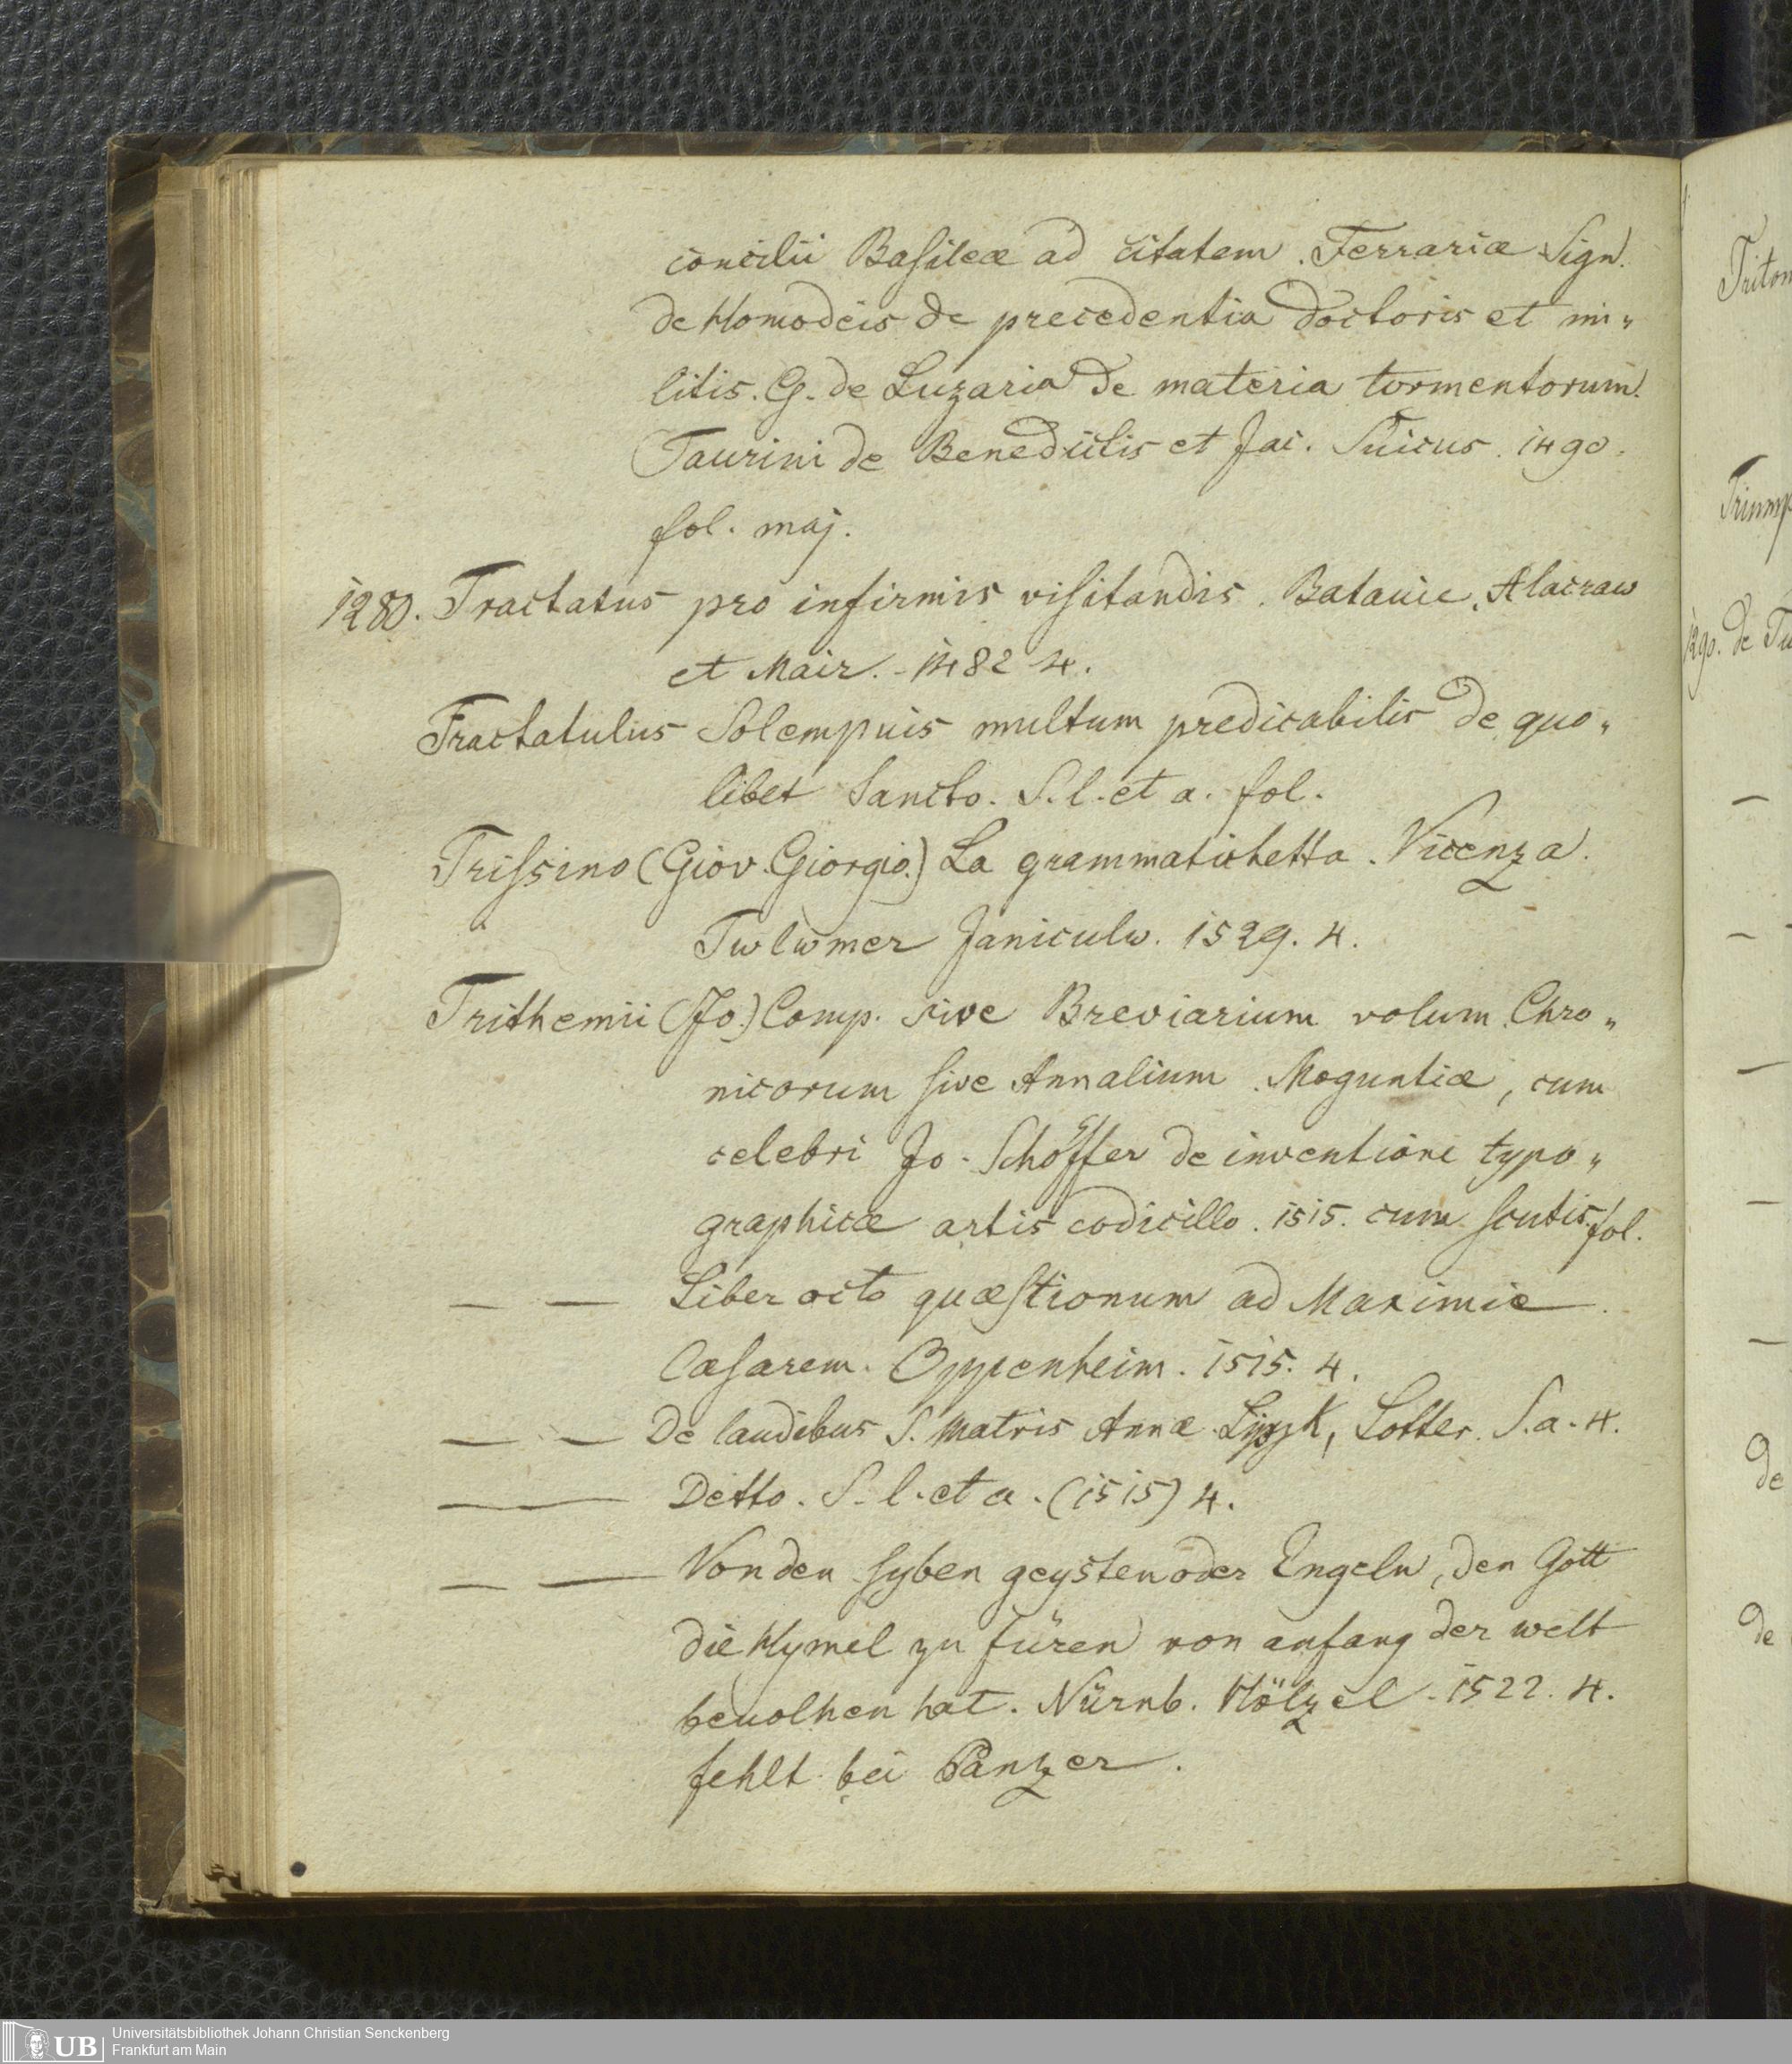 concilii Basileæ ad citatem. Ferrariæ Sign.
de Homodeis de precedentia doctoris et mi„
litis. G. de Luzaria de materia tormentorum.
Taurini de Benedictis et Jac. Suicus. 1490.
fol. maj.
1280. Tractatus pro infirmis visitandis. Batauie, Alacraw
et Mair. 1482 4.
Tractatulus Solempuis multum predicabilis de quo„
libet Sancto. S. l. et a. fol.
Trissino (Giov. Giorgio.) La grammatichetta. Vicenza.
Twlwmer Janiculw. 1529. 4.
Trithemii (Jo.) Comp. sive Breviarium volum. Chro„
nicorum sive Annalium. Moguntiæ, cum
celebri Jo. Schöffer de inventione typo„
graphicæ artis codicillo. 1515. cum scutis. fol.
— — Liber octo quæstionum ad Maximie
Cæsarem. Oppenheim. 1515. 4.
— — De laudibus S. Matris Annæ. Lypzk, Lotter. S. a. 4.
— — Detto. S. l. et a. (1515) 4.
— — Von den syben geysten oder Engeln, den Gott
die Hymel zu füren von anfang der welt
beuolhen hat. Nürnb. Hölzel. 1522. 4.
fehlt bei Panzer.
Triton
Triump
1290. de Tu
—
—
—
—
—
de
de
UB
Universitätsbibliothek Johann Christian Senckenberg
Frankfurt am Main